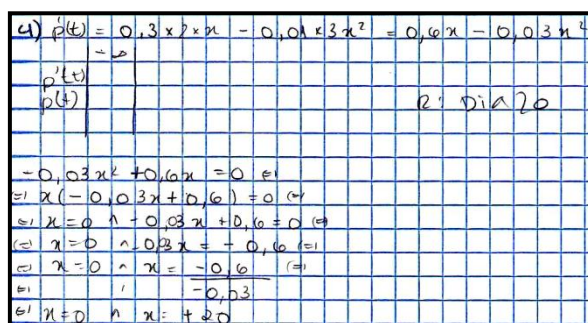 4) p'(t) = 0,3 × 2 × x - 0,01 × 3x² = 0,6x - 0,03x²
-∞
p'(t)
p(t)
R: Dia 20
-0,03x² + 0,6x = 0 (=)
(=) x(-0,03x + 0,6) = 0 (=)
(=) x = 0 ∧ -0,03x + 0,6 = 0 (=)
(=) x = 0 ∧ -0,03x = -0,6 (=)
(=) x = 0 ∧ x = -0,6 (=)
(=) -0,03
(=) x = 0 ∧ x = +20